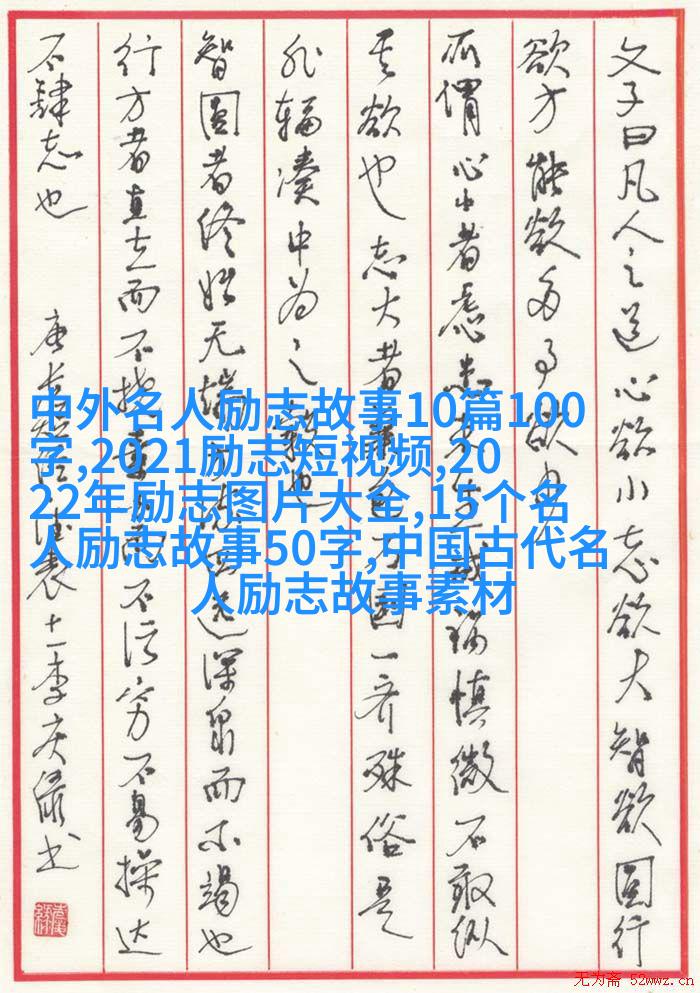 文子曰凡人之道心欲小志欲大智欲圆行
欲方能欲多事欲少
所谓心小者虑患未生戒祸慎微不敢纵
其欲也志大者兼包万国一齐殊俗是
非辐凑中为之毂也
智圆者终始无端方流四远深泉而不竭也
行方者直立而不挠素白而不污穷不易操达
不肆志也
唐长短经德表十一李庆绿书
中外名人励志故事10篇100
字,2021励志短视频,20
22年励志图片大全,15个名
人励志故事50字,中国古代名
人励志故事素材
无为斋 52wwz.cn